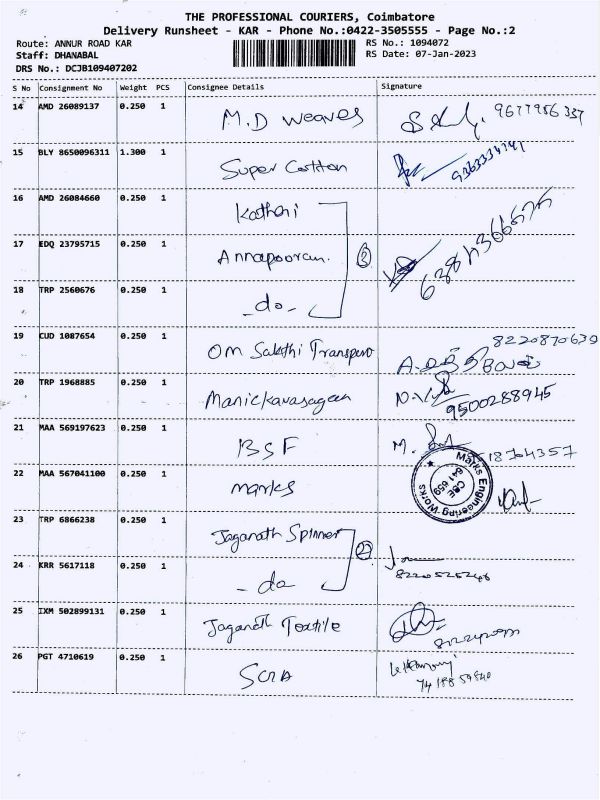 THE PROFESSIONAL COURIERS, Coimbatore
Delivery Runsheet - KAR - Phone No.:0422-3505555 - Page No.:2
Route: ANNUR ROAD KAR
Staff: DHANABAL
DRS No.: DCJB109407202
RS No.: 1094072
RS Date: 07-Jan-2023
S No Consignment No Weight PCS Consignee Details Signature
14 AMD 26089137 0.250 1 M.D weaves
15 BLY 8650096311 1.300 1 Super Cotton
16 AMD 26084660 0.250 1 Kathari
17 EDQ 23795715 0.250 1 Annapooran. 3
18 TRP 2560676 0.250 1 -do-
19 CUD 1087654 0.250 1 OM Sakthi Transport 8220870639
20 TRP 1968885 0.250 1 Manickavasagam 9500288945
21 MAA 569197623 0.250 1 BSF M.
22 MAA 567041100 0.250 1 marks
Marks Engineering Works
CBE
641 659
23 TRP 6866238 0.250 1 Jaganath Spinner 2
24 KRR 5617118 0.250 1 - do 8220525246
25 IXM 502899131 0.250 1 Jaganath Textile
26 PGT 4710619 0.250 1